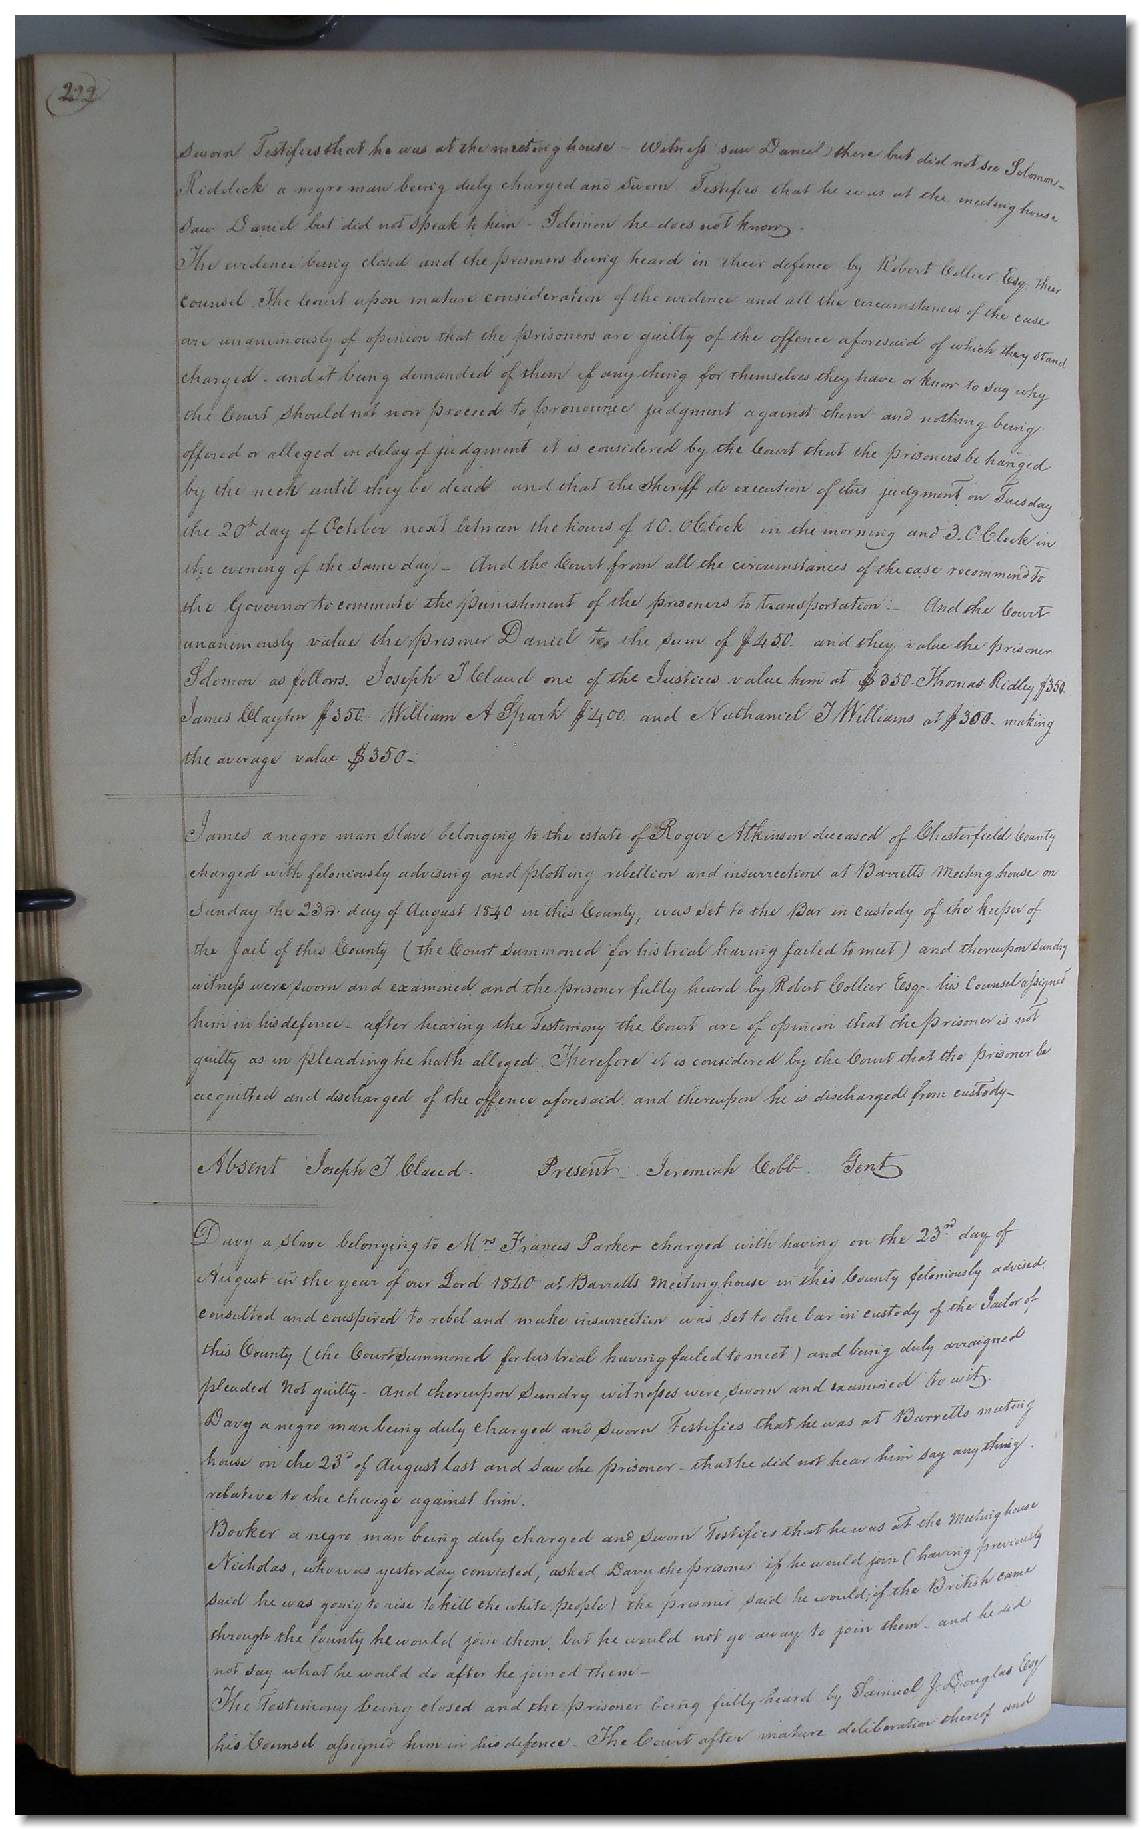 299
sworn Testifies that he was at the meeting house - Witness saw Daniel there but did not see Solomon -
Riddick a negro man being duly charged and sworn Testifies that he was at the meeting house
saw Daniel but did not speak to him - Solomon he does not know.
The evidence being closed and the prisoners being heard in their defence by Robert Collier Esq. their
counsel The Court upon mature consideration of the evidence and all the circumstances of the case
are unanimously of opinion that the prisoners are guilty of the offence aforesaid of which they stand
charged - and it being demanded of them if any thing for themselves they have or know to say why
the Court should not now proceed to pronounce judgment against them and nothing being
offered or alleged in delay of judgment it is considered by the Court that the prisoners be hanged
by the neck until they be dead and that the Sheriff do execution of this judgment on Tuesday
the 20th day of October next between the hours of 10. OClock in the morning and 3. OClock in
the evening of the same day - And the Court from all the circumstances of the case recommend to
the Governor to commute the punishment of the prisoners to transportation :- And the Court
unanimously value the prisoner Daniel to the sum of $450. and they value the prisoner
Solomon as follows. Joseph T Claud one of the Justices value him at $350. Thomas Ridley $350.
James Clayton $350. William A Spark $400. and Nathaniel T Williams at $300 - making
the average value $350 -
James a negro man slave belonging to the estate of Roger Atkinson deceased of Chesterfield County
charged with feloniously advising and plotting rebellion and insurrection at Barretts Meeting house on
Sunday the 23rd. day of August 1840 in this County, was set to the Bar in custody of the keeper of
the Jail of this County (the Court summoned for his trial having failed to meet) and thereupon sundry
witness were sworn and examined and the prisoner fully heard by Robert Collier Esqr. his Counsel assigned
him in his defence - after hearing the Testimony the Court are of opinion that the prisoner is not
guilty as in pleading he hath alleged. Therefore it is considered by the Court that the prisoner be
acquitted and discharged of the offence aforesaid. and thereupon he is discharged from custody -
Absent Joseph T Claud. Present - Jeremiah Cobb. Gent
Davy a slave belonging to Mrs Frances Parker charged with having on the 23rd day of
August in the year of our Lord 1840 at Barretts Meeting house in this County feloniously advised,
consulted and conspired to rebel and make insurrection was set to the bar in custody of the Jailor of
this County (the Court summoned for his trial having failed to meet) and being duly arraigned
pleaded Not guilty - and thereupon Sundry witnesses were sworn and examined to wit,
Davy a negro man being duly charged and sworn Testifies that he was at Barretts meeting
house on the 23d of August last and saw the prisoner - that he did not hear him say any thing
relative to the charge against him.
Booker a negro man being duly charged and sworn Testifies that he was at the Meeting house
Nicholas, who was yesterday convicted, asked Davy the prisoner if he would join (having previously
said he was going to rise to kill the white people) the prisoner said he would, if the British came
through the County he would join them, but he would not go away to join them - and he did
not say what he would do after he joined them -
The Testimony being closed and the prisoner being fully heard by Samuel J. Douglas Esq
his Counsel assigned him in his defence - The Court after mature deliberation thereof and